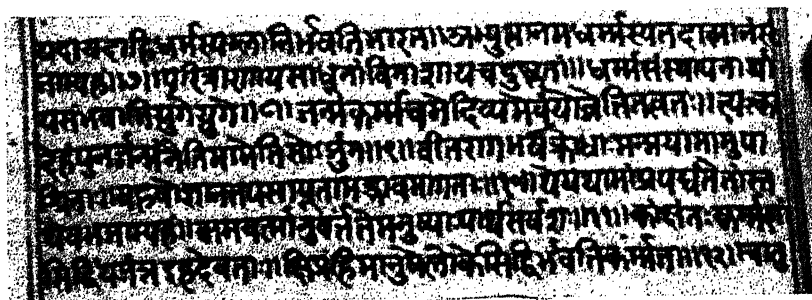 यदायदाहिधर्मस्यग्लानिर्भवतिभारत॥अभ्युत्थानमधर्म्मस्यतदात्मानंसृ
जाम्यहं॥७॥परित्राणायसाधूनांविनाशायचदुष्कृतां॥धर्म्मसंस्थापनार्था
यसंभवामियुगेयुगे॥८॥जन्मकर्म्मचमेदिव्यमेवंयोवेत्तितत्वतः॥त्यक्त्वा
देहंपुनर्जन्मनैतिमामेतिसोर्जुन॥९॥वीतरागभयक्रोधामन्मयामामुपा
श्रिताः॥बहवोज्ञानतपसापूतामद्भावमागताः॥१०॥येयथामांप्रपद्यंतेतांस्त
थैवभजाम्यहं॥ममवर्त्मानुवर्त्तंतेमनुष्याःपार्थसर्वशः॥११॥कांक्षंतःकर्मणां
सिद्धिंयजंतइहदेवताः॥क्षिप्रंहिमानुषेलोकेसिद्धिर्भवतिकर्मजा॥१२॥चातु